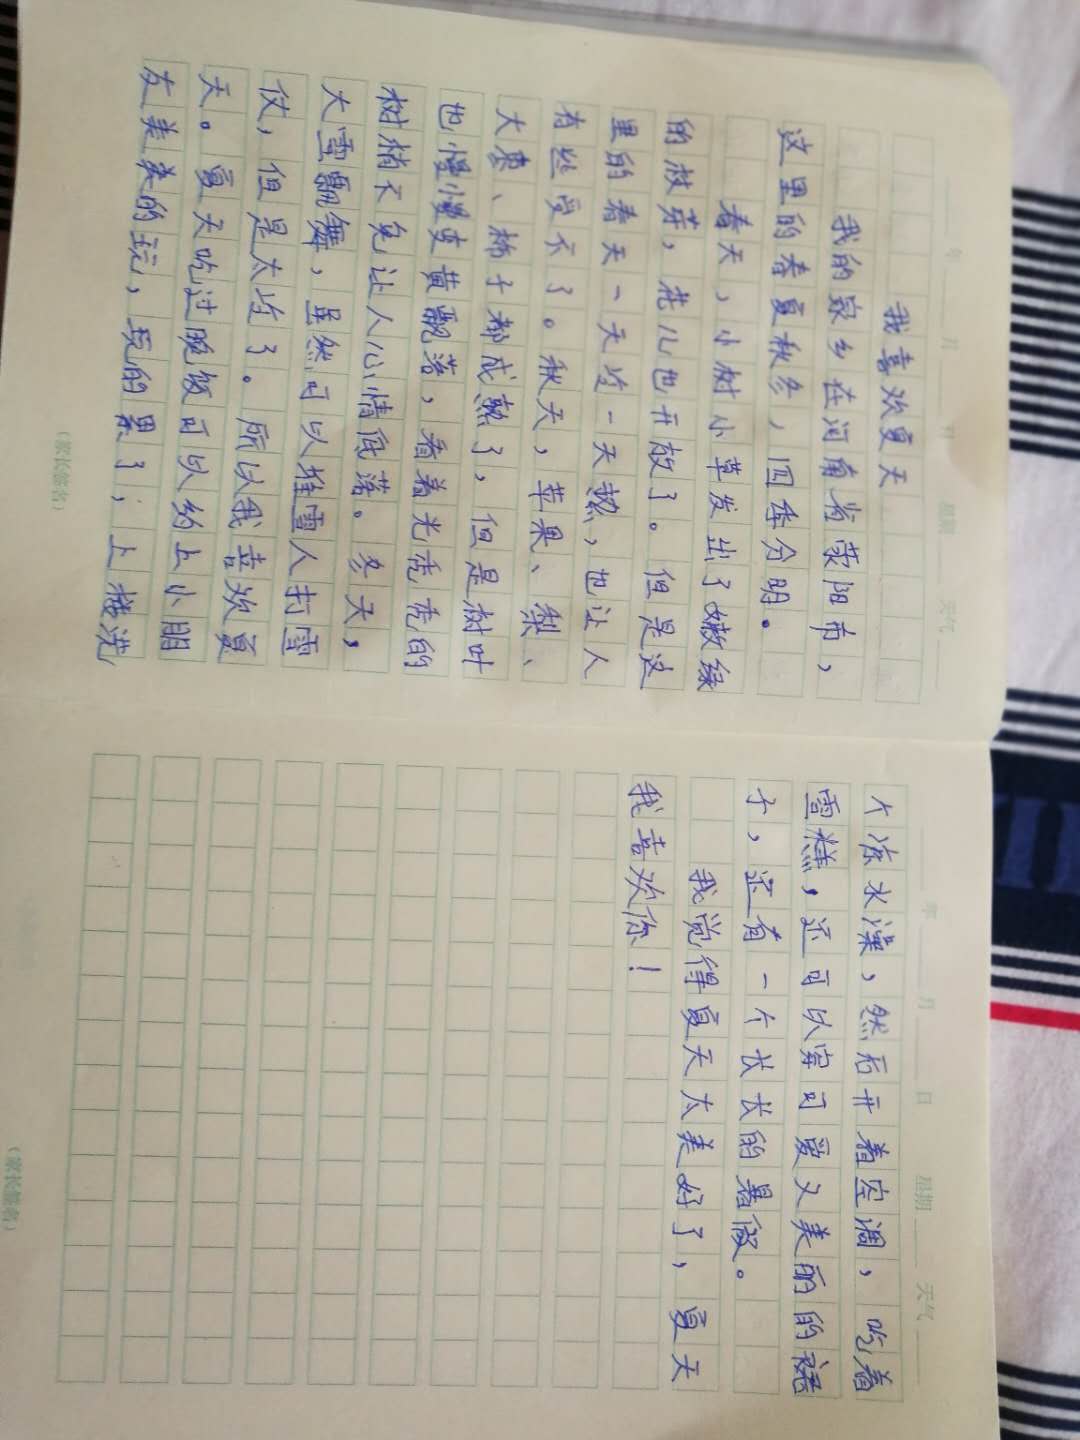 年 月 日 星期 天气
我喜欢夏天
我的家乡在河南省荥阳市，
这里的春夏秋冬，四季分明。
春天，小树小草发出了嫩绿
的枝芽，花儿也开放了。但是这
里的春天一天近一天热，也让人
有些受不了。秋天，苹果、梨、
大枣、柿子都成熟了，但是树叶
也慢慢变黄飘落，看着光秃秃的
树梢不免让人心情低落。冬天，
大雪飘舞，虽然可以堆雪人打雪
仗，但是太冷了。所以我喜欢夏
天。夏天吃过晚饭可以约上小朋
友美美的玩，玩的累了，上楼洗
（家长签名）
年 月 日 星期 天气
个冻水澡，然后开着空调，吃着
雪糕，还可以穿可爱又美丽的裙
子，还有一个长长的暑假。
我觉得夏天太美好了，夏天
我喜欢你！
（家长签名）